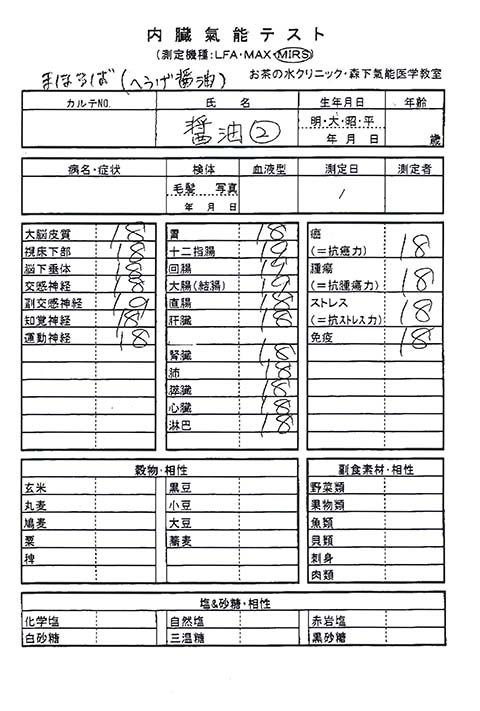 内臓氣能テスト
(測定機種:LFA・MAX・MIRS)
まはるば(へうげ醤油) お茶の水クリニック・森下氣能医学教室
カルテNO. 氏名 生年月日 年齢
醤油② 明・大・昭・平
年 月 日 歳
病名・症状 検体 血液型 測定日 測定者
毛髪 写真 /
年 月 日
大脳皮質 18 胃 18 癌
視床下部 18 十二指腸 19 (=抗癌力) 18
脳下垂体 18 回腸 19 腫瘍
交感神経 18 大腸(結腸) 19 (=抗腫瘍力) 18
副交感神経 19 直腸 18 ストレス
知覚神経 18 肝臓 18 (=抗ストレス力) 18
運動神経 18 免疫 18
腎臓 18
肺 18
膵臓 18
心臓 18
淋巴 18
穀物・相性 副食素材・相性
玄米 黒豆 野菜類
丸麦 小豆 果物類
鳩麦 大豆 魚類
粟 蕎麦 貝類
稗 刺身
肉類
塩&砂糖・相性
化学塩 自然塩 赤岩塩
白砂糖 三温糖 黒砂糖